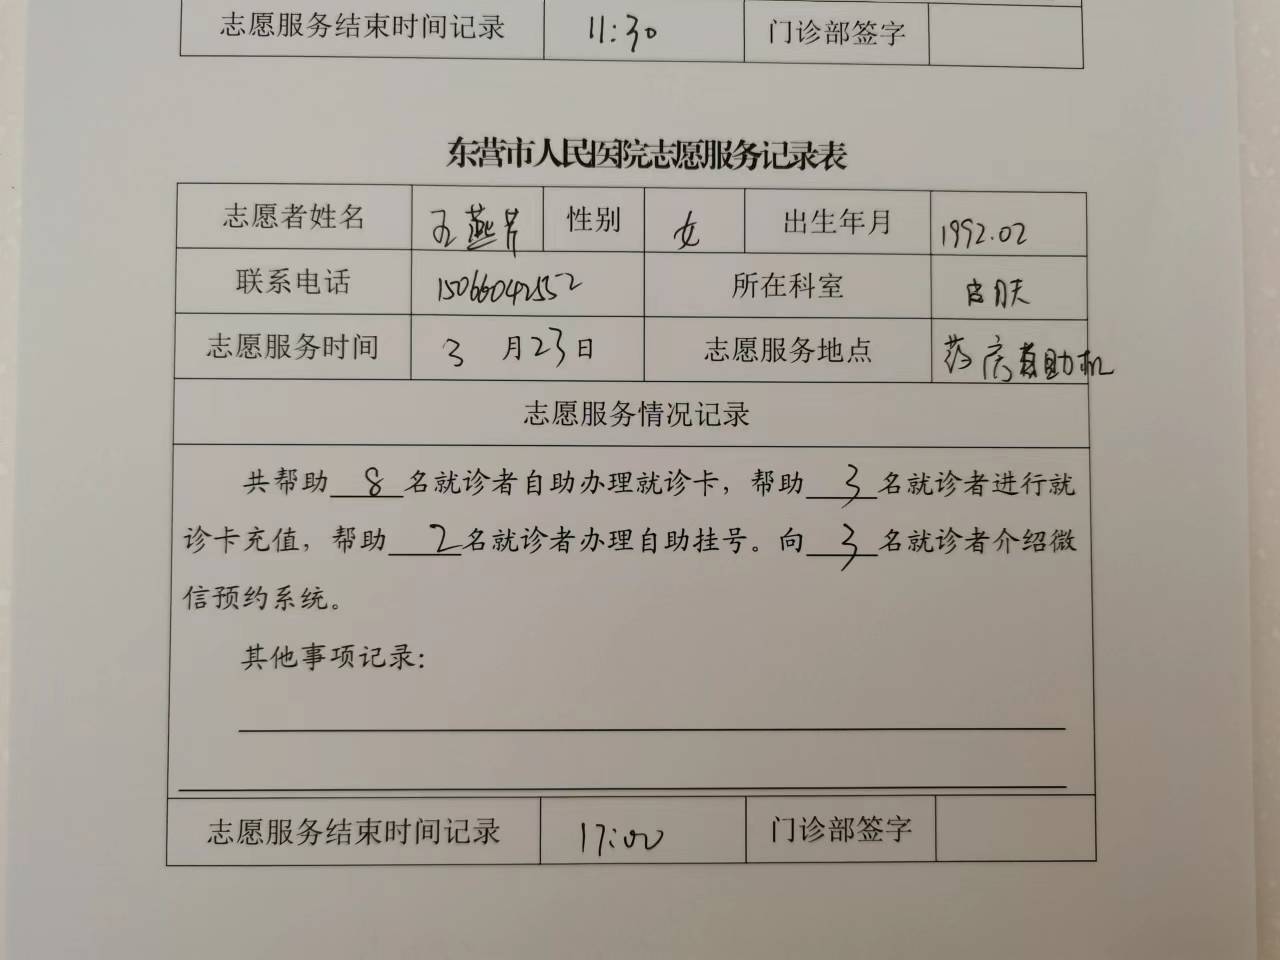 志愿服务结束时间记录 11:30 门诊部签字
东营市人民医院志愿服务记录表
志愿者姓名 王燕芹 性别 女 出生年月 1992.02
联系电话 15066042552 所在科室 皮肤
志愿服务时间 3 月23日 志愿服务地点 药房自助机
志愿服务情况记录
共帮助 8 名就诊者自助办理就诊卡，帮助 3 名就诊者进行就
诊卡充值，帮助 2 名就诊者办理自助挂号。向 3 名就诊者介绍微
信预约系统。
其他事项记录：
志愿服务结束时间记录 17:00 门诊部签字